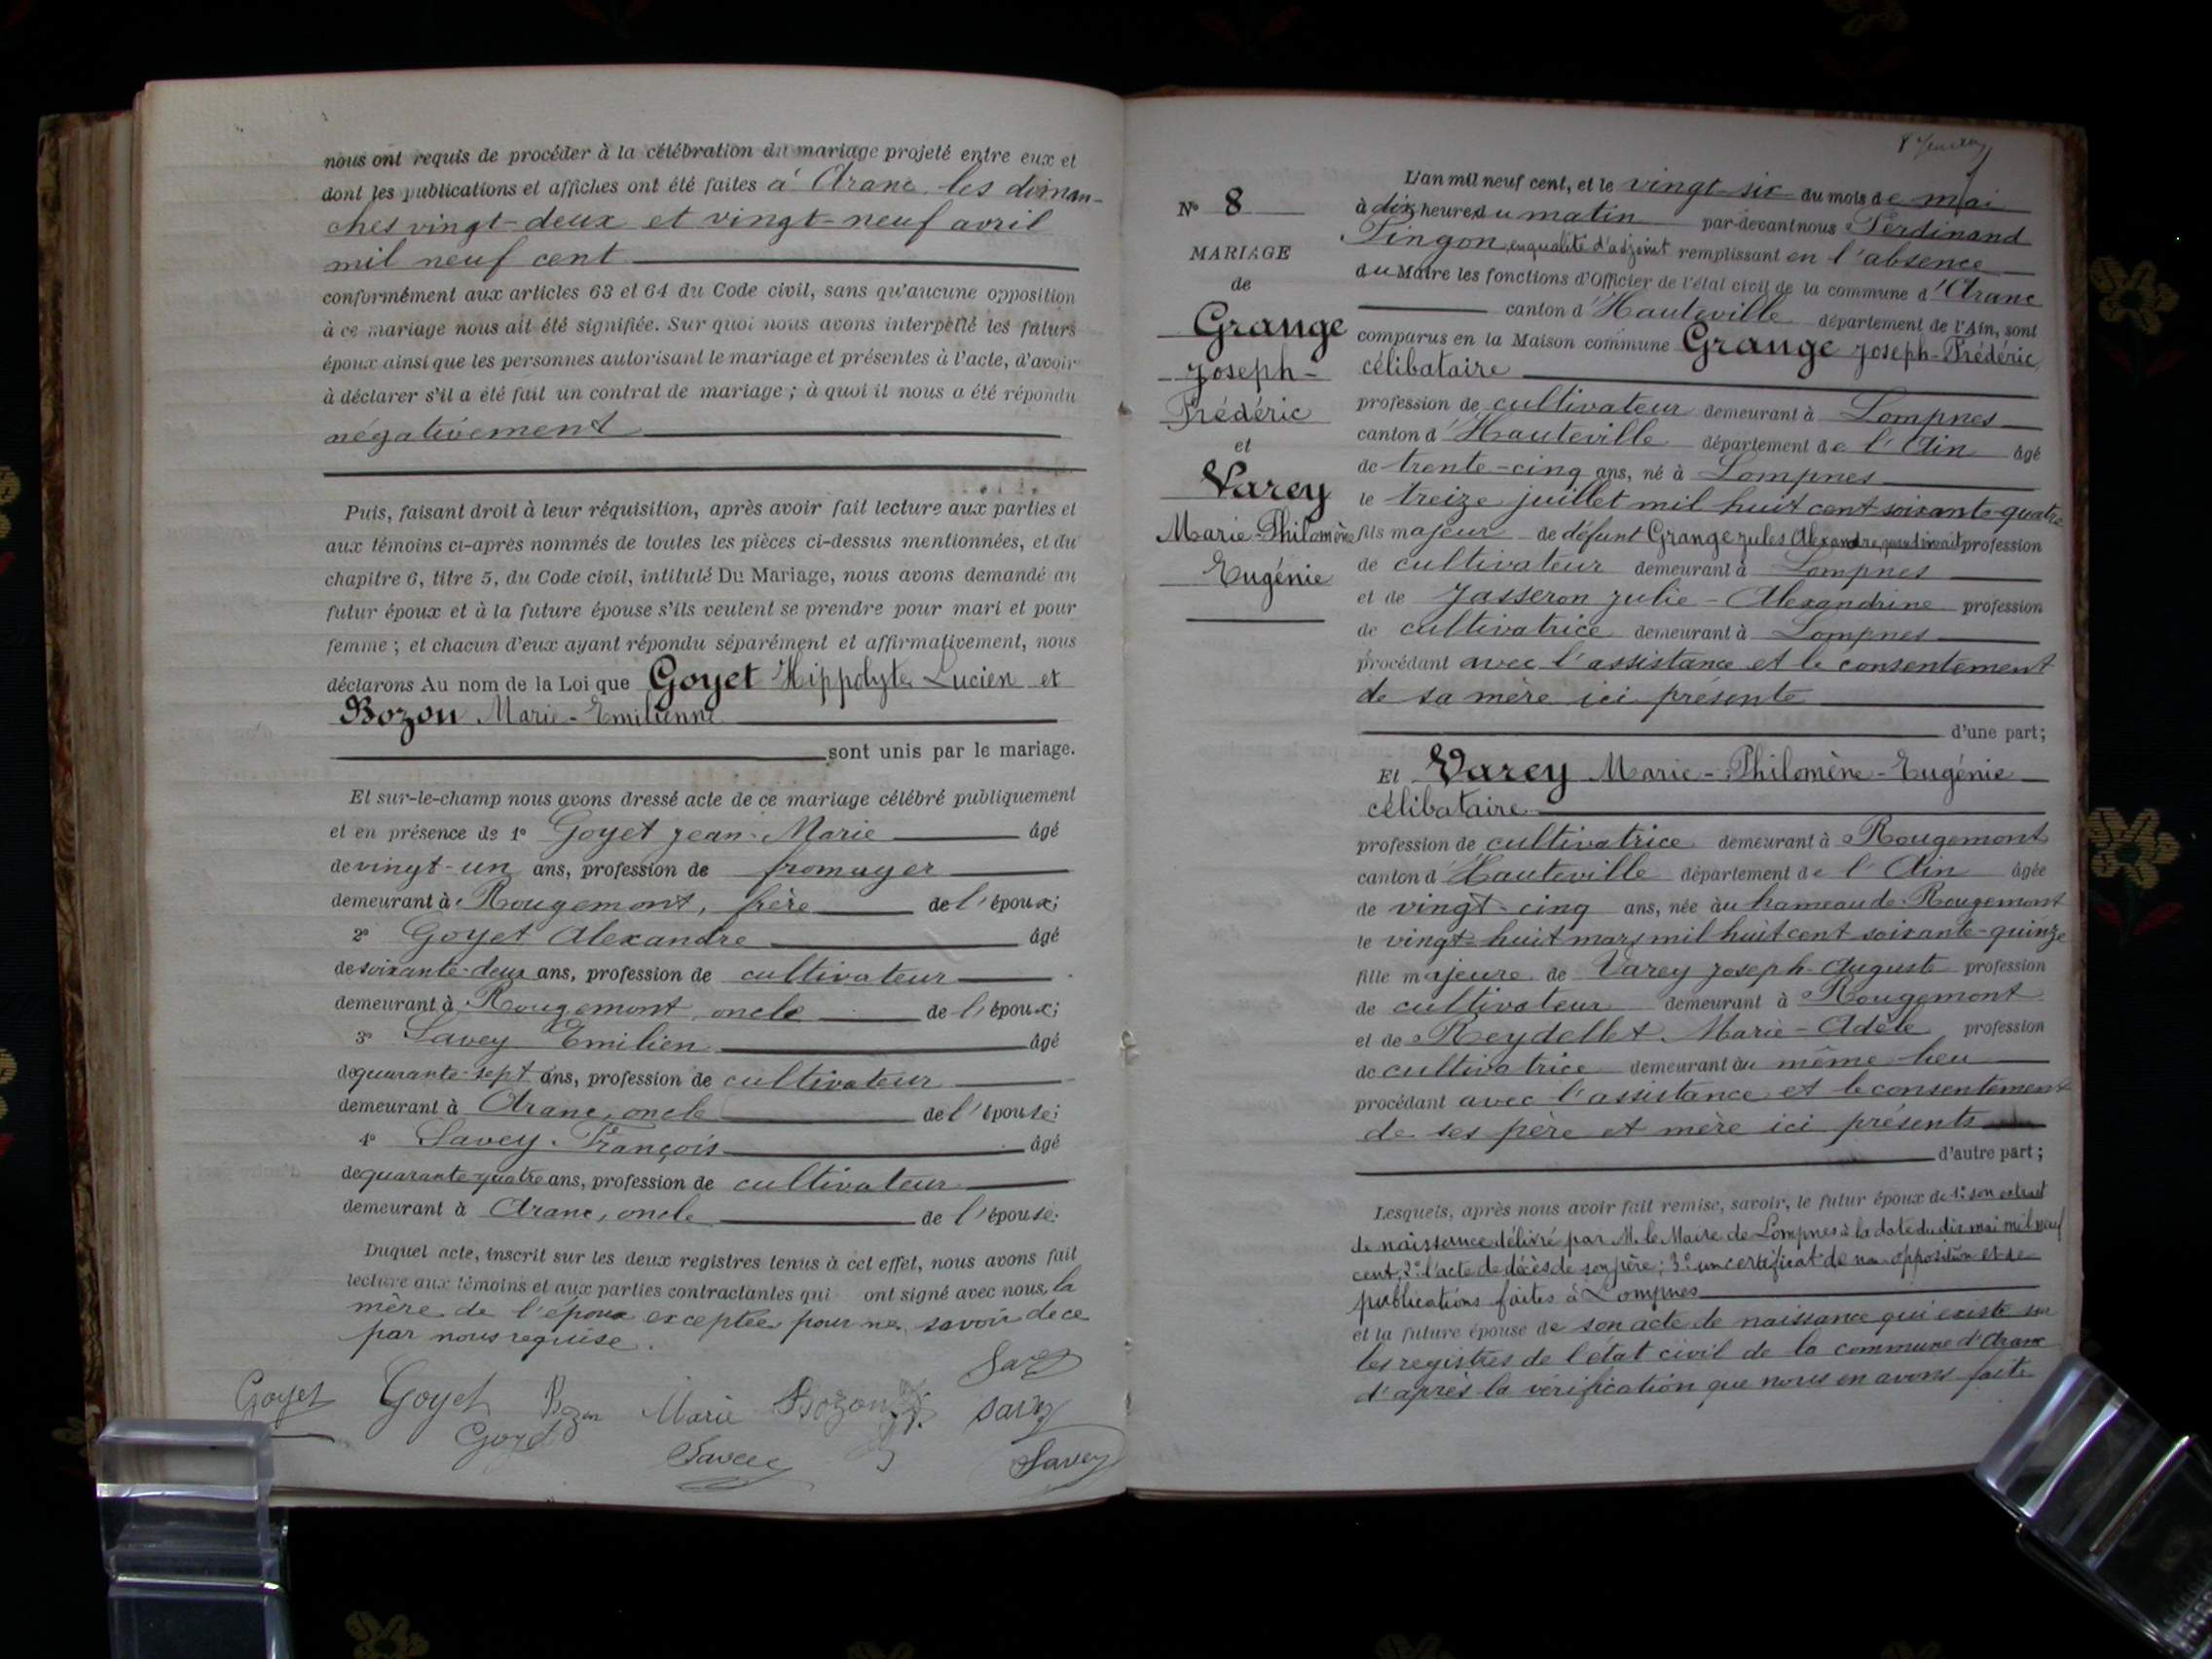 nous ont requis de procéder à la célébration du mariage projeté entre eux et
dont les publications et affiches ont été faites à Aranc les diman-
ches vingt-deux et vingt-neuf avril
mil neuf cent
conformément aux articles 63 et 64 du Code civil, sans qu'aucune opposition
à ce mariage nous ait été signifiée. Sur quoi nous avons interpellé les futurs
époux ainsi que les personnes autorisant le mariage et présentes à l'acte, d'avoir
à déclarer s'il a été fait un contrat de mariage ; à quoi il nous a été répondu
négativement
Puis, faisant droit à leur réquisition, après avoir fait lecture aux parties et
aux témoins ci-après nommés de toutes les pièces ci-dessus mentionnées, et du
chapitre 6, titre 5, du Code civil, intitulé Du Mariage, nous avons demandé au
futur époux et à la future épouse s'ils veulent se prendre pour mari et pour
femme ; et chacun d'eux ayant répondu séparément et affirmativement, nous
déclarons Au nom de la Loi que Goyet Hippolyte Lucien et
Bozon Marie-Emilienne
sont unis par le mariage.
Et sur-le-champ nous avons dressé acte de ce mariage célébré publiquement
et en présence de 1° Goyet Jean-Marie âgé
de vingt-un ans, profession de fromager
demeurant à Rougemont, frère de l'époux;
2° Goyet Alexandre âgé
de soixante-deux ans, profession de cultivateur
demeurant à Rougemont, oncle de l'époux;
3° Savey Emilien âgé
de quarante-sept ans, profession de cultivateur
demeurant à Aranc, oncle de l'épouse;
4° Savey François âgé
de quarante quatre ans, profession de cultivateur
demeurant à Aranc, oncle de l'épouse;
Duquel acte, inscrit sur les deux registres tenus à cet effet, nous avons fait
lecture aux témoins et aux parties contractantes qui ont signé avec nous, la
mère de l'époux exceptée pour ne savoir de ce
par nous requise.
Savey
Goyet Goyet Bozon Marie Bozon Savey
Goyet Savey Savey
N° 8
MARIAGE
de
Grange
Joseph-
Frédéric
et
Varey
Marie-Philomène
Eugénie
L'an mil neuf cent, et le vingt-six du mois de mai
à dix heures du matin par-devant nous Ferdinand
Pingon, en qualité d'adjoint remplissant en l'absence
du Maire les fonctions d'Officier de l'état civil de la commune d'Aranc
canton d'Hauteville département de l'Ain, sont
comparus en la Maison commune Grange Joseph-Frédéric
célibataire
profession de cultivateur demeurant à Lompnes
canton d'Hauteville département de l'Ain âgé
de trente-cinq ans, né à Lompnes
le treize juillet mil huit cent soixante-quatre
fils majeur de défunt Grange Jules Alexandre, quand vivait profession
de cultivateur demeurant à Lompnes
et de Jasseron Julie-Alexandrine profession
de cultivatrice demeurant à Lompnes
procédant avec l'assistance et le consentement
de sa mère ici présente
d'une part;
Et Varey Marie-Philomène-Eugénie
célibataire
profession de cultivatrice demeurant à Rougemont
canton d'Hauteville département de l'Ain âgée
de vingt-cinq ans, née au hameau de Rougemont
le vingt-huit mars mil huit cent soixante-quinze
fille majeure de Varey Joseph-Auguste profession
de cultivateur demeurant à Rougemont
et de Reydellet Marie-Adèle profession
de cultivatrice demeurant au même lieu
procédant avec l'assistance et le consentement
de ses père et mère ici présents
d'autre part;
Lesquels, après nous avoir fait remise, savoir, le futur époux de 1° son extrait
de naissance délivré par M. le Maire de Lompnes à la date du dix mai mil neuf
cent, 2° l'acte de décès de son père; 3° un certificat de non opposition et de
publications faites à Lompnes
et la future épouse de son acte de naissance qui existe sur
les registres de l'état civil de la commune d'Aranc
d'après la vérification que nous en avons faite